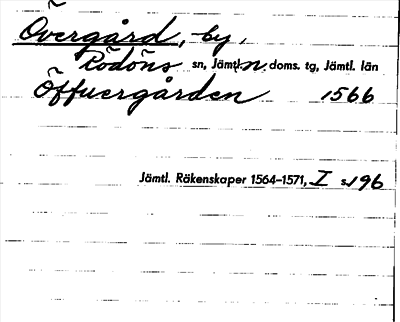 Övergård, -by,
Rödöns sn, Jämt. n. doms. tg, Jämtl. län
Öffuergården 1566
Jämtl. Räkenskaper 1564–1571, I s. 196